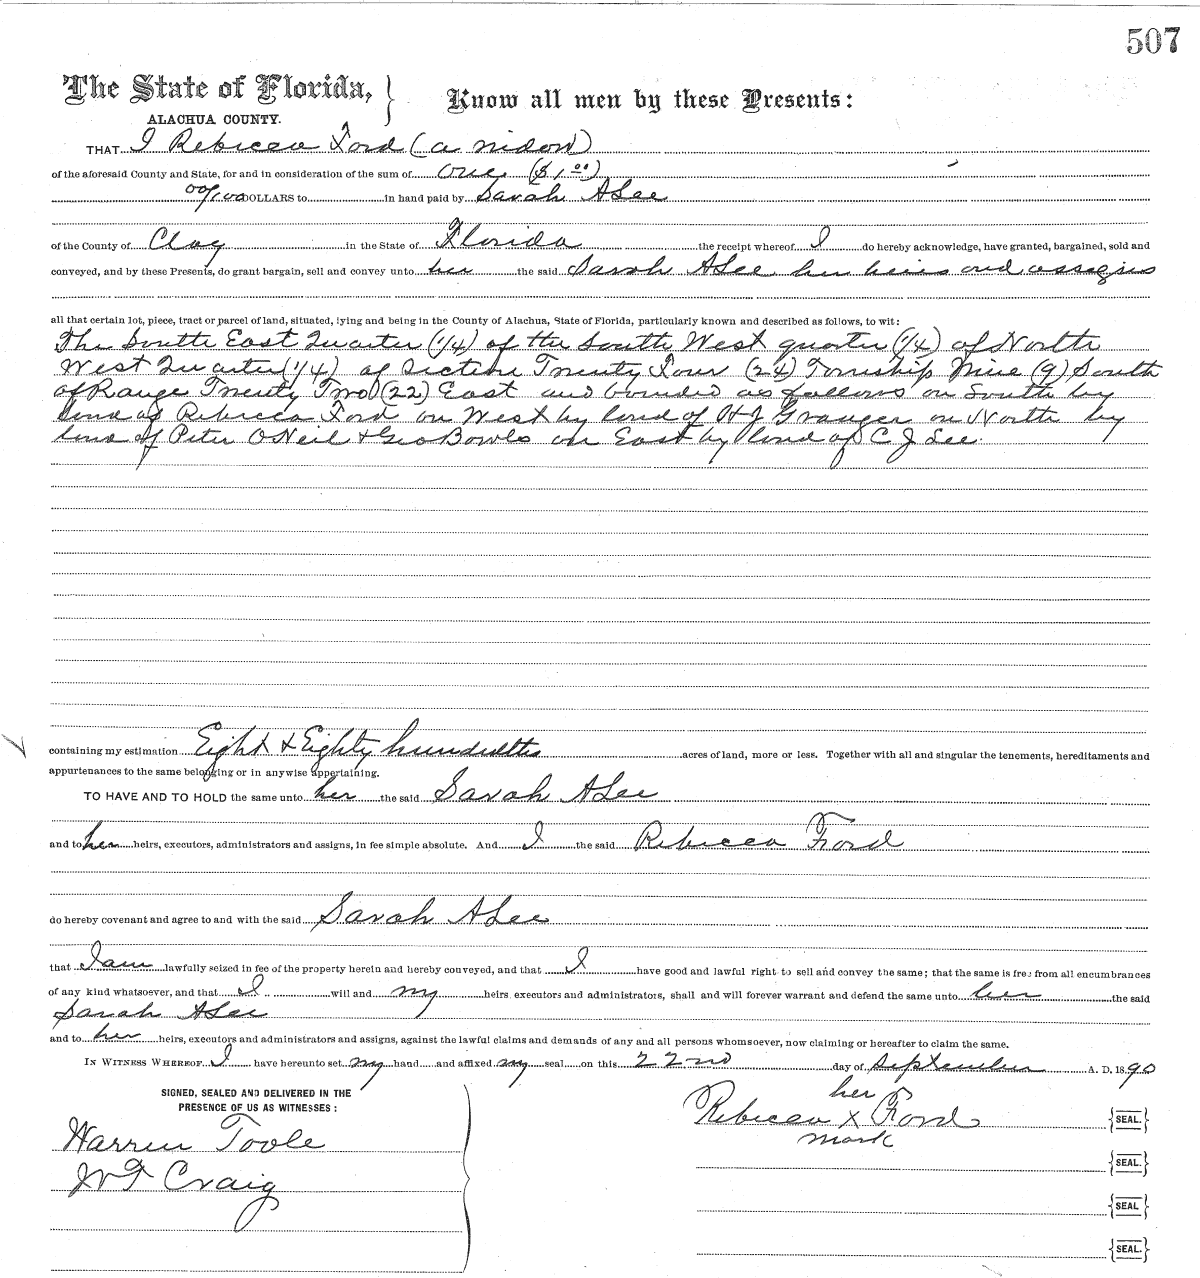 507
The State of Florida, } Know all men by these Presents:
ALACHUA COUNTY.
THAT I Rebecca Ford (a widow)
of the aforesaid County and State, for and in consideration of the sum of one ($1.00)
00/100 DOLLARS to in hand paid by Sarah A Lee
of the County of Clay in the State of Florida the receipt whereof I do hereby acknowledge, have granted, bargained, sold and
conveyed, and by these Presents, do grant bargain, sell and convey unto her the said Sarah A Lee her heirs and assigns
all that certain lot, piece, tract or parcel of land, situated, lying and being in the County of Alachua, State of Florida, particularly known and described as follows, to wit:
The South East Quarter (1/4) of the South West quarter (1/4) of North
West Quarter (1/4) of Section Twenty Four (24) Township Nine (9) South
of Range Twenty Two (22) East and bounded as follows on South by
land of Rebecca Ford on West by land of H J Granger on North by
land of Peter O Neil & Geo Bowls on East by land of C J Lee.
containing my estimation Eight & Eighty hundredths acres of land, more or less. Together with all and singular the tenements, hereditaments and
appurtenances to the same belonging or in anywise appertaining.
TO HAVE AND TO HOLD the same unto her the said Sarah A Lee
and to her heirs, executors, administrators and assigns, in fee simple absolute. And I the said Rebecca Ford
do hereby covenant and agree to and with the said Sarah A Lee
that I am lawfully seized in fee of the property herein and hereby conveyed, and that I have good and lawful right to sell and convey the same; that the same is free from all encumbrances
of any kind whatsoever, and that I will and my heirs executors and administrators, shall and will forever warrant and defend the same unto her the said
Sarah A Lee
and to her heirs, executors and administrators and assigns, against the lawful claims and demands of any and all persons whomsoever, now claiming or hereafter to claim the same.
IN WITNESS WHEREOF I have hereunto set my hand and affixed my seal on this 22nd day of September A. D. 1890
SIGNED, SEALED AND DELIVERED IN THE
PRESENCE OF US AS WITNESSES:
her
Rebecca X Ford {SEAL.}
mark
Warren Toole
W T Craig
{SEAL.}
{SEAL.}
{SEAL.}